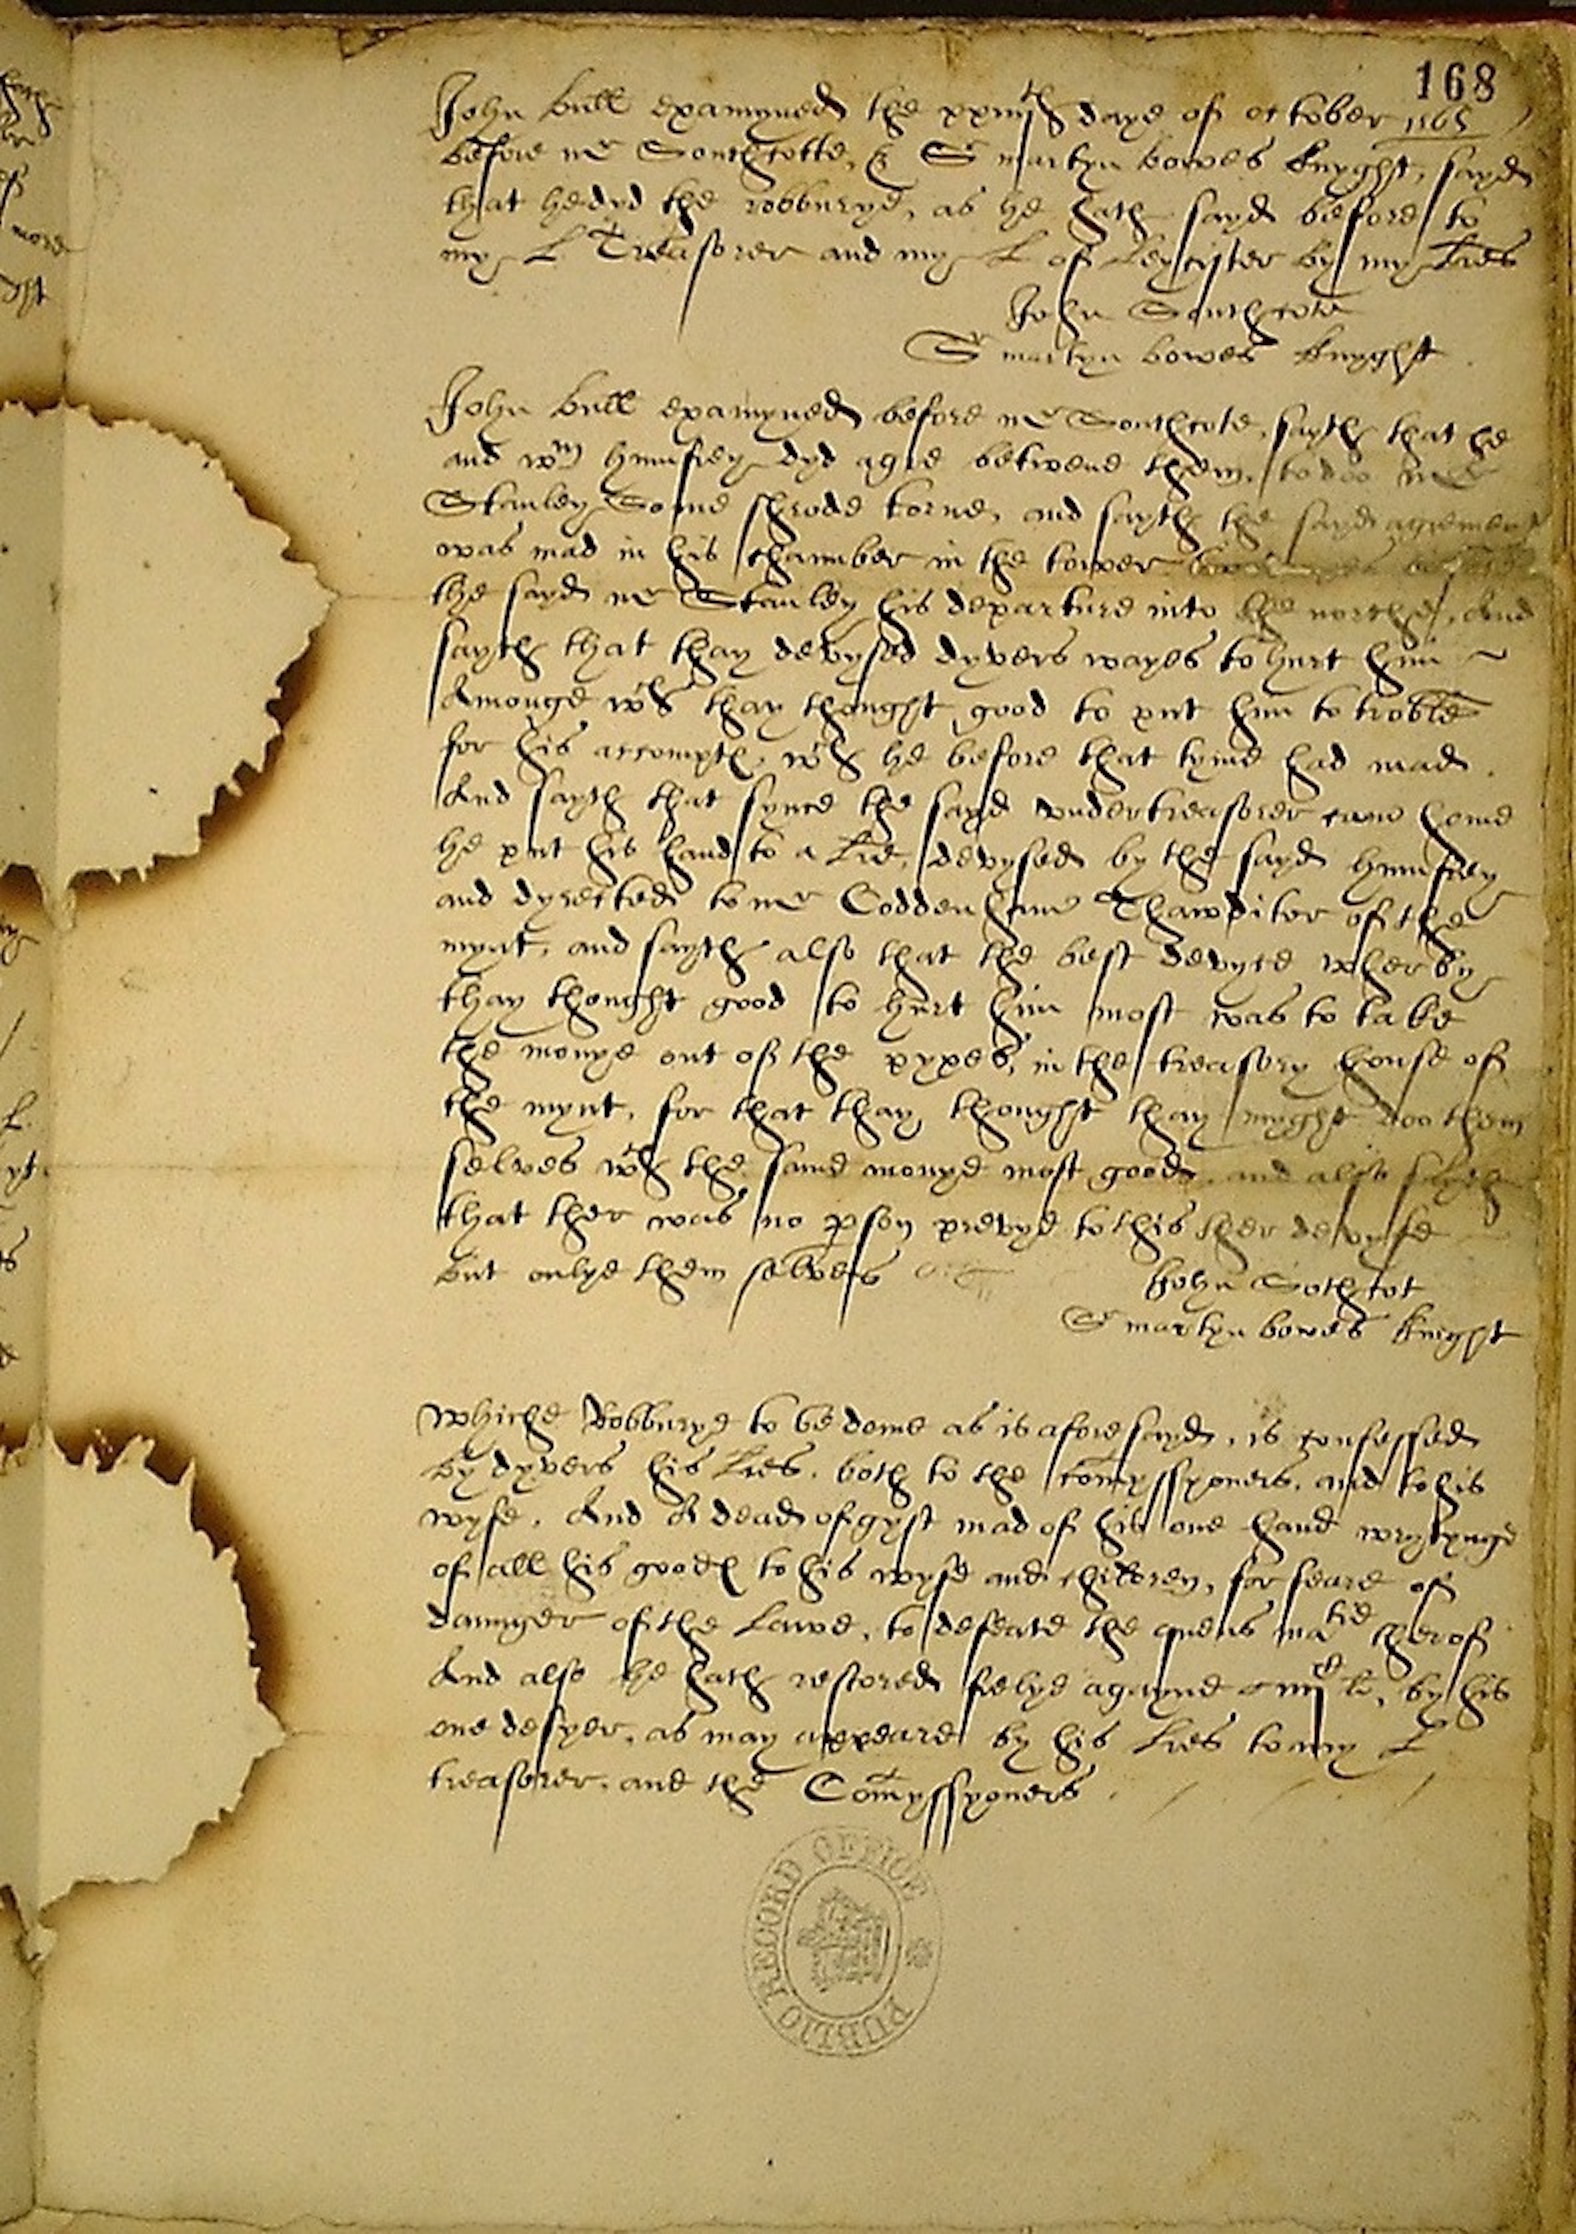 168
John Bull examyned the xxiiijth daye of october 1565
before mr Southcotte, & Sr martyn bowes knyght, sayd
that he dyd the robburye, as he hath sayd before to
my L Treasorer and my L of Leycister by my Lres
John Southcote
Sr martyn bowes knyght
John Bull examyned before mr Southcote, sayth that he
and wm humfrey dyd agre betwene them, to doo mr
Stanley Some shrode torne, and sayth the sayd agrement
was mad in his chamber in the tower
the sayd mr Stanley his departure into the northe, And
sayth that thay devysed dyvers wayes to hurt him
Amonge wch thay thought good to put him to troble
for his accompth, wch he before that tyme had mad.
And sayth that synce the sayd undertreasorer cam home
he put his hand to a Lre, devysed by the sayd humfrey
and dyrected to mr Coddenham Thawditor of the
mynt, and sayth also that the best devyce wherby
thay thought good to hurt him most was to take
the monye out of the pyxes, in the treasory house of
the mynt, for that thay thought thay myght doo them
selves wth the same monye most good, and also sayeth
that ther was no pson prevye to this ther devyse
but onlye them selves
John Sothcot
Sr martyn bowes knight
Whiche Robburye to be done as is aforesayd, is confessed
by dyvers his Lres, both to the comyssyoners, and to his
wyfe, And A dead of gyft mad of his one hand wrytynge
of all his goodes to his wyfe and children, for feare of
daunger of the Lawe, to defeate the quens matie therof
And also he hath restored frelye agayne li, by his
one desyer, as may appeare by his Lres to my L
treasorer, and the Comyssyoners.
PUBLIC RECORD OFFICE